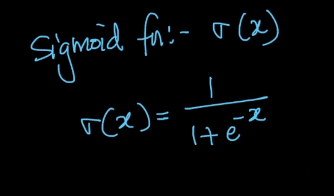 Sigmoid fn:- σ(x)
σ(x) = 1 / (1 + e^-x)